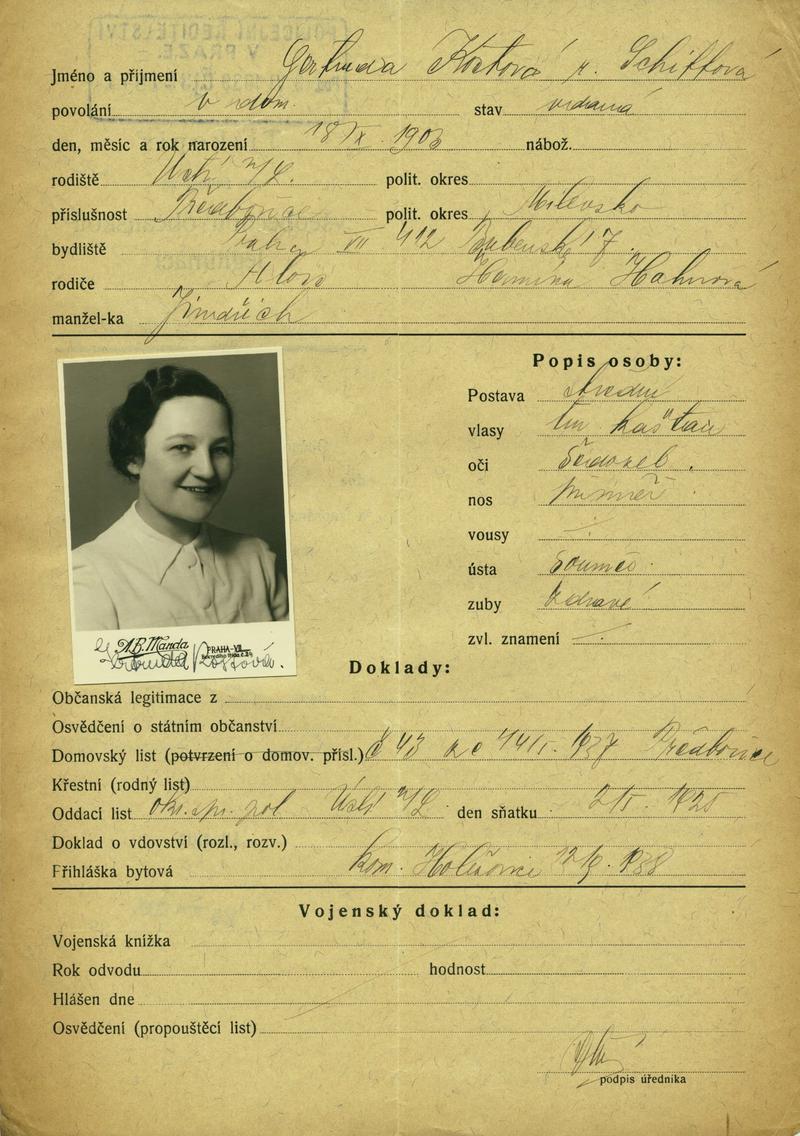 POLICEJNÍ ŘEDITELSTVÍ
V PRAZE.
Jméno a příjmení Gertruda Köstová r. Schiffová
povolání v dom. stav vdaná
den, měsíc a rok narození 18/X 1903 nábož.
rodiště Ústí n/L. polit. okres
příslušnost Předbořice polit. okres Milevsko
bydliště Praha VII 412 Bubenská 7.
rodiče Alois Hermína Hahnová
manžel-ka Jindřich
Popis osoby:
Postava střední
vlasy tm kaštan
oči šedozel.
nos
vousy
ústa souměr.
zuby zdravé
zvl. znamení
A.B. Manda PRAHA-VII
Doklady:
Občanská legitimace z
Osvědčení o státním občanství
Domovský list (potvrzení o domov. přísl.) č 43 ze 1937 Předbořice
Křestní (rodný list)
Oddací list Ústí n/L den sňatku 1925
Doklad o vdovství (rozl., rozv.)
Přihláška bytová kom. Holešovice 1938
Vojenský doklad:
Vojenská knížka
Rok odvodu hodnost
Hlášen dne
Osvědčení (propouštěcí list)
podpis úředníka